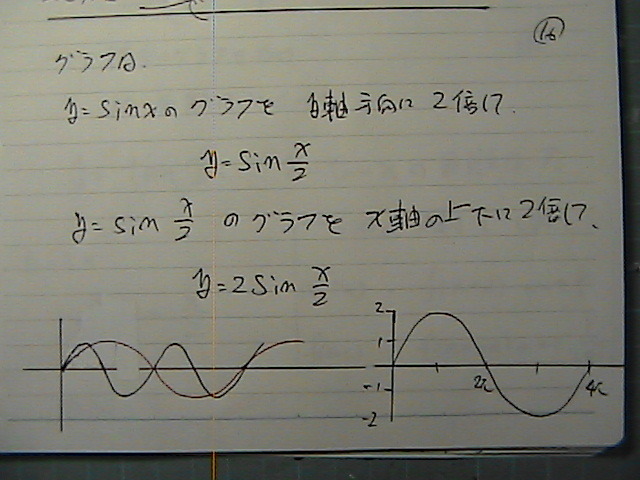 16
グラフは.
y=sinxの グラフを y軸方向に 2倍して.
y=sin x/2
y=sin x/2 のグラフを x軸の上下に2倍して、
y=2sin x/2
2
1
-1
-2
2π
4π